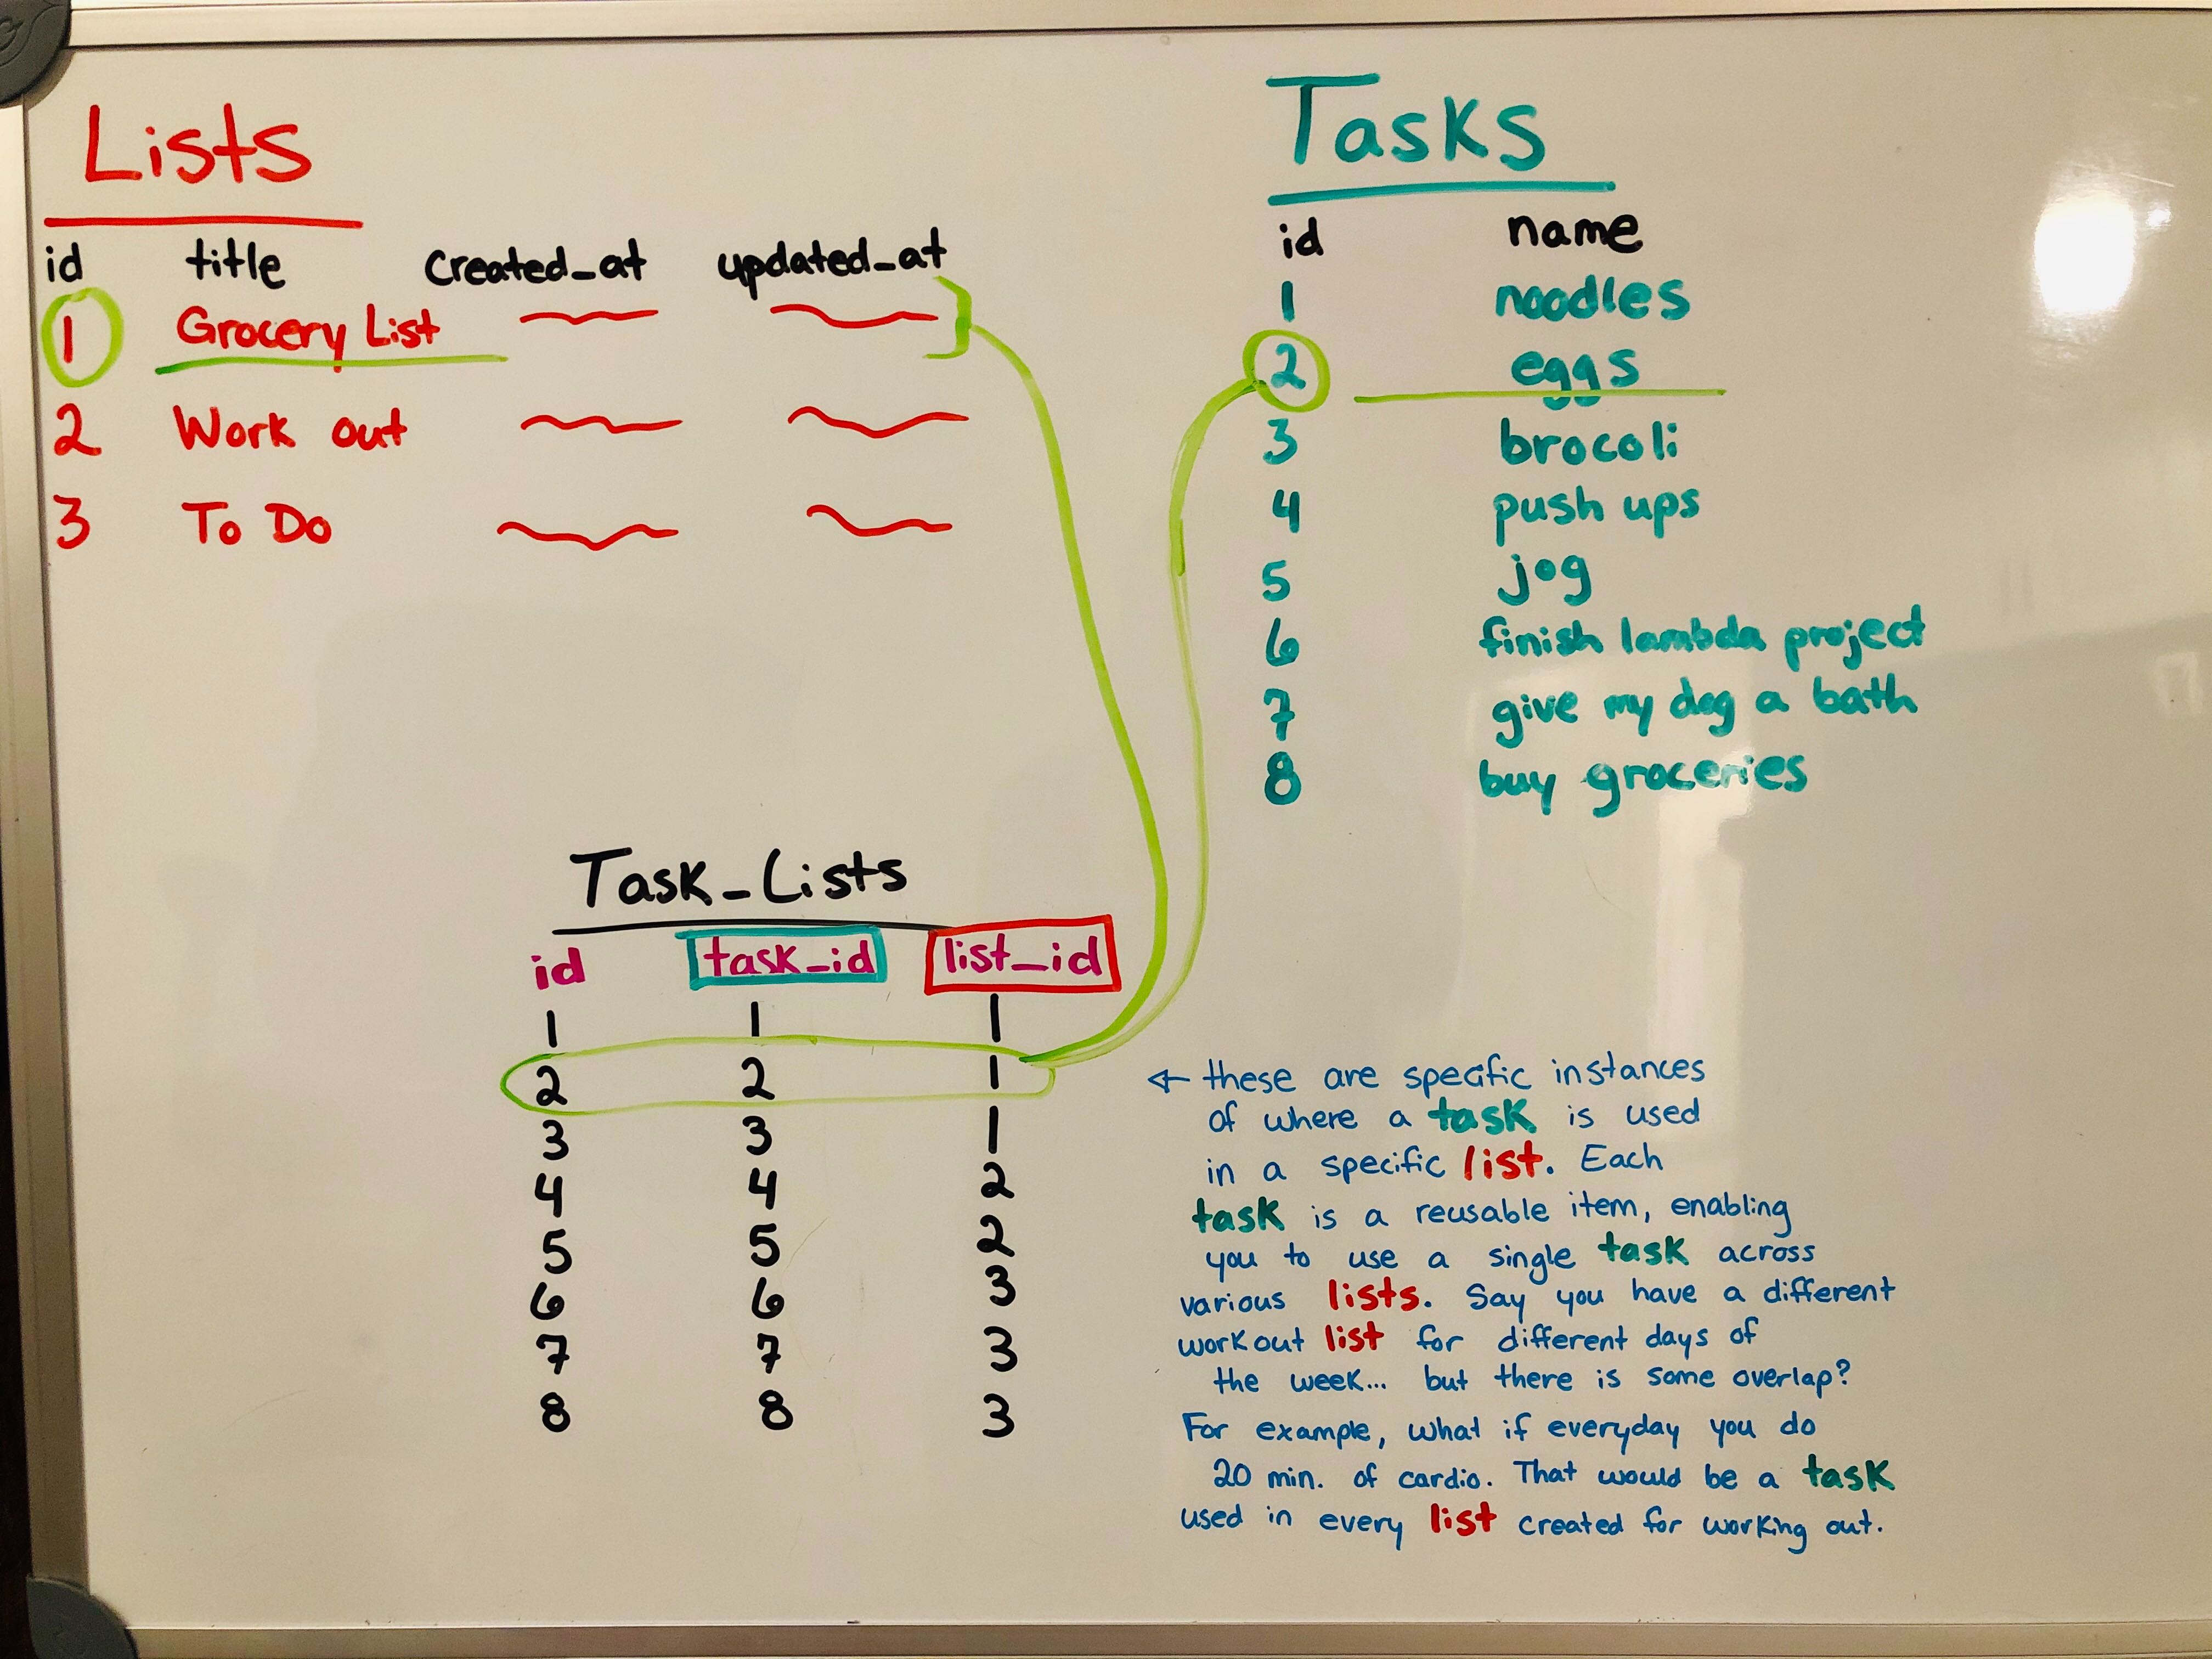 Lists
id title created_at updated_at
1 Grocery List
2 Work out
3 To Do
Tasks
id name
1 noodles
2 eggs
3 brocoli
4 push ups
5 jog
6 finish lambda project
7 give my dog a bath
8 buy groceries
Task_Lists
id task_id list_id
1 1 1
2 2 1
3 3 1
4 4 2
5 5 2
6 6 3
7 7 3
8 8 3
← these are specific instances
of where a task is used
in a specific list. Each
task is a reusable item, enabling
you to use a single task across
various lists. Say you have a different
workout list for different days of
the week... but there is some overlap?
For example, what if everyday you do
20 min. of cardio. That would be a task
used in every list created for working out.